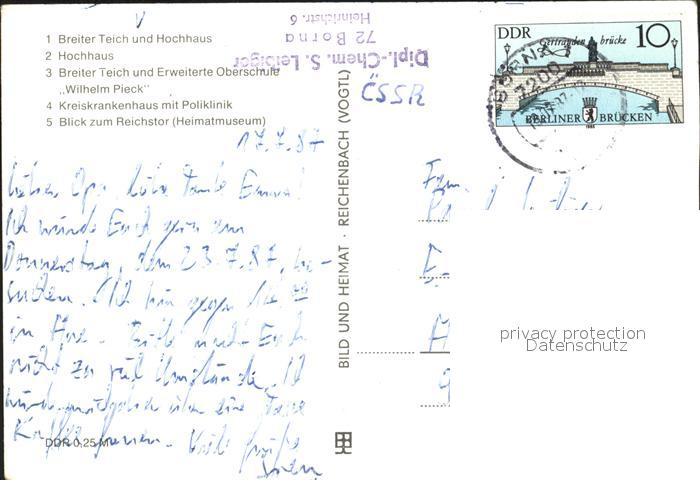 1 Breiter Teich und Hochhaus
2 Hochhaus
3 Breiter Teich und Erweiterte Oberschule
„Wilhelm Pieck"
4 Kreiskrankenhaus mit Poliklinik
5 Blick zum Reichstor (Heimatmuseum)
17.7.87
Lieber Opa, liebe Tante Emma!
Ich würde Euch gern am
Donnerstag, dem 23.7.87, be-
suchen. Ich bin gegen
in Bitte macht Euch
nicht zu viel Umstände. Ich
würde mich über eine Tasse
Kaffee freuen. Viele Grüße
DDR 0,25 M
BILD UND HEIMAT · REICHENBACH (VOGTL)
Dipl.-Chem. S. Leibiger
72 Borna
Heinrichstr. 6
ČSSR
DDR
Gertraudenbrücke
10
BERLINER BRÜCKEN
BORNA
7200
Fam.
privacy protection
Datenschutz